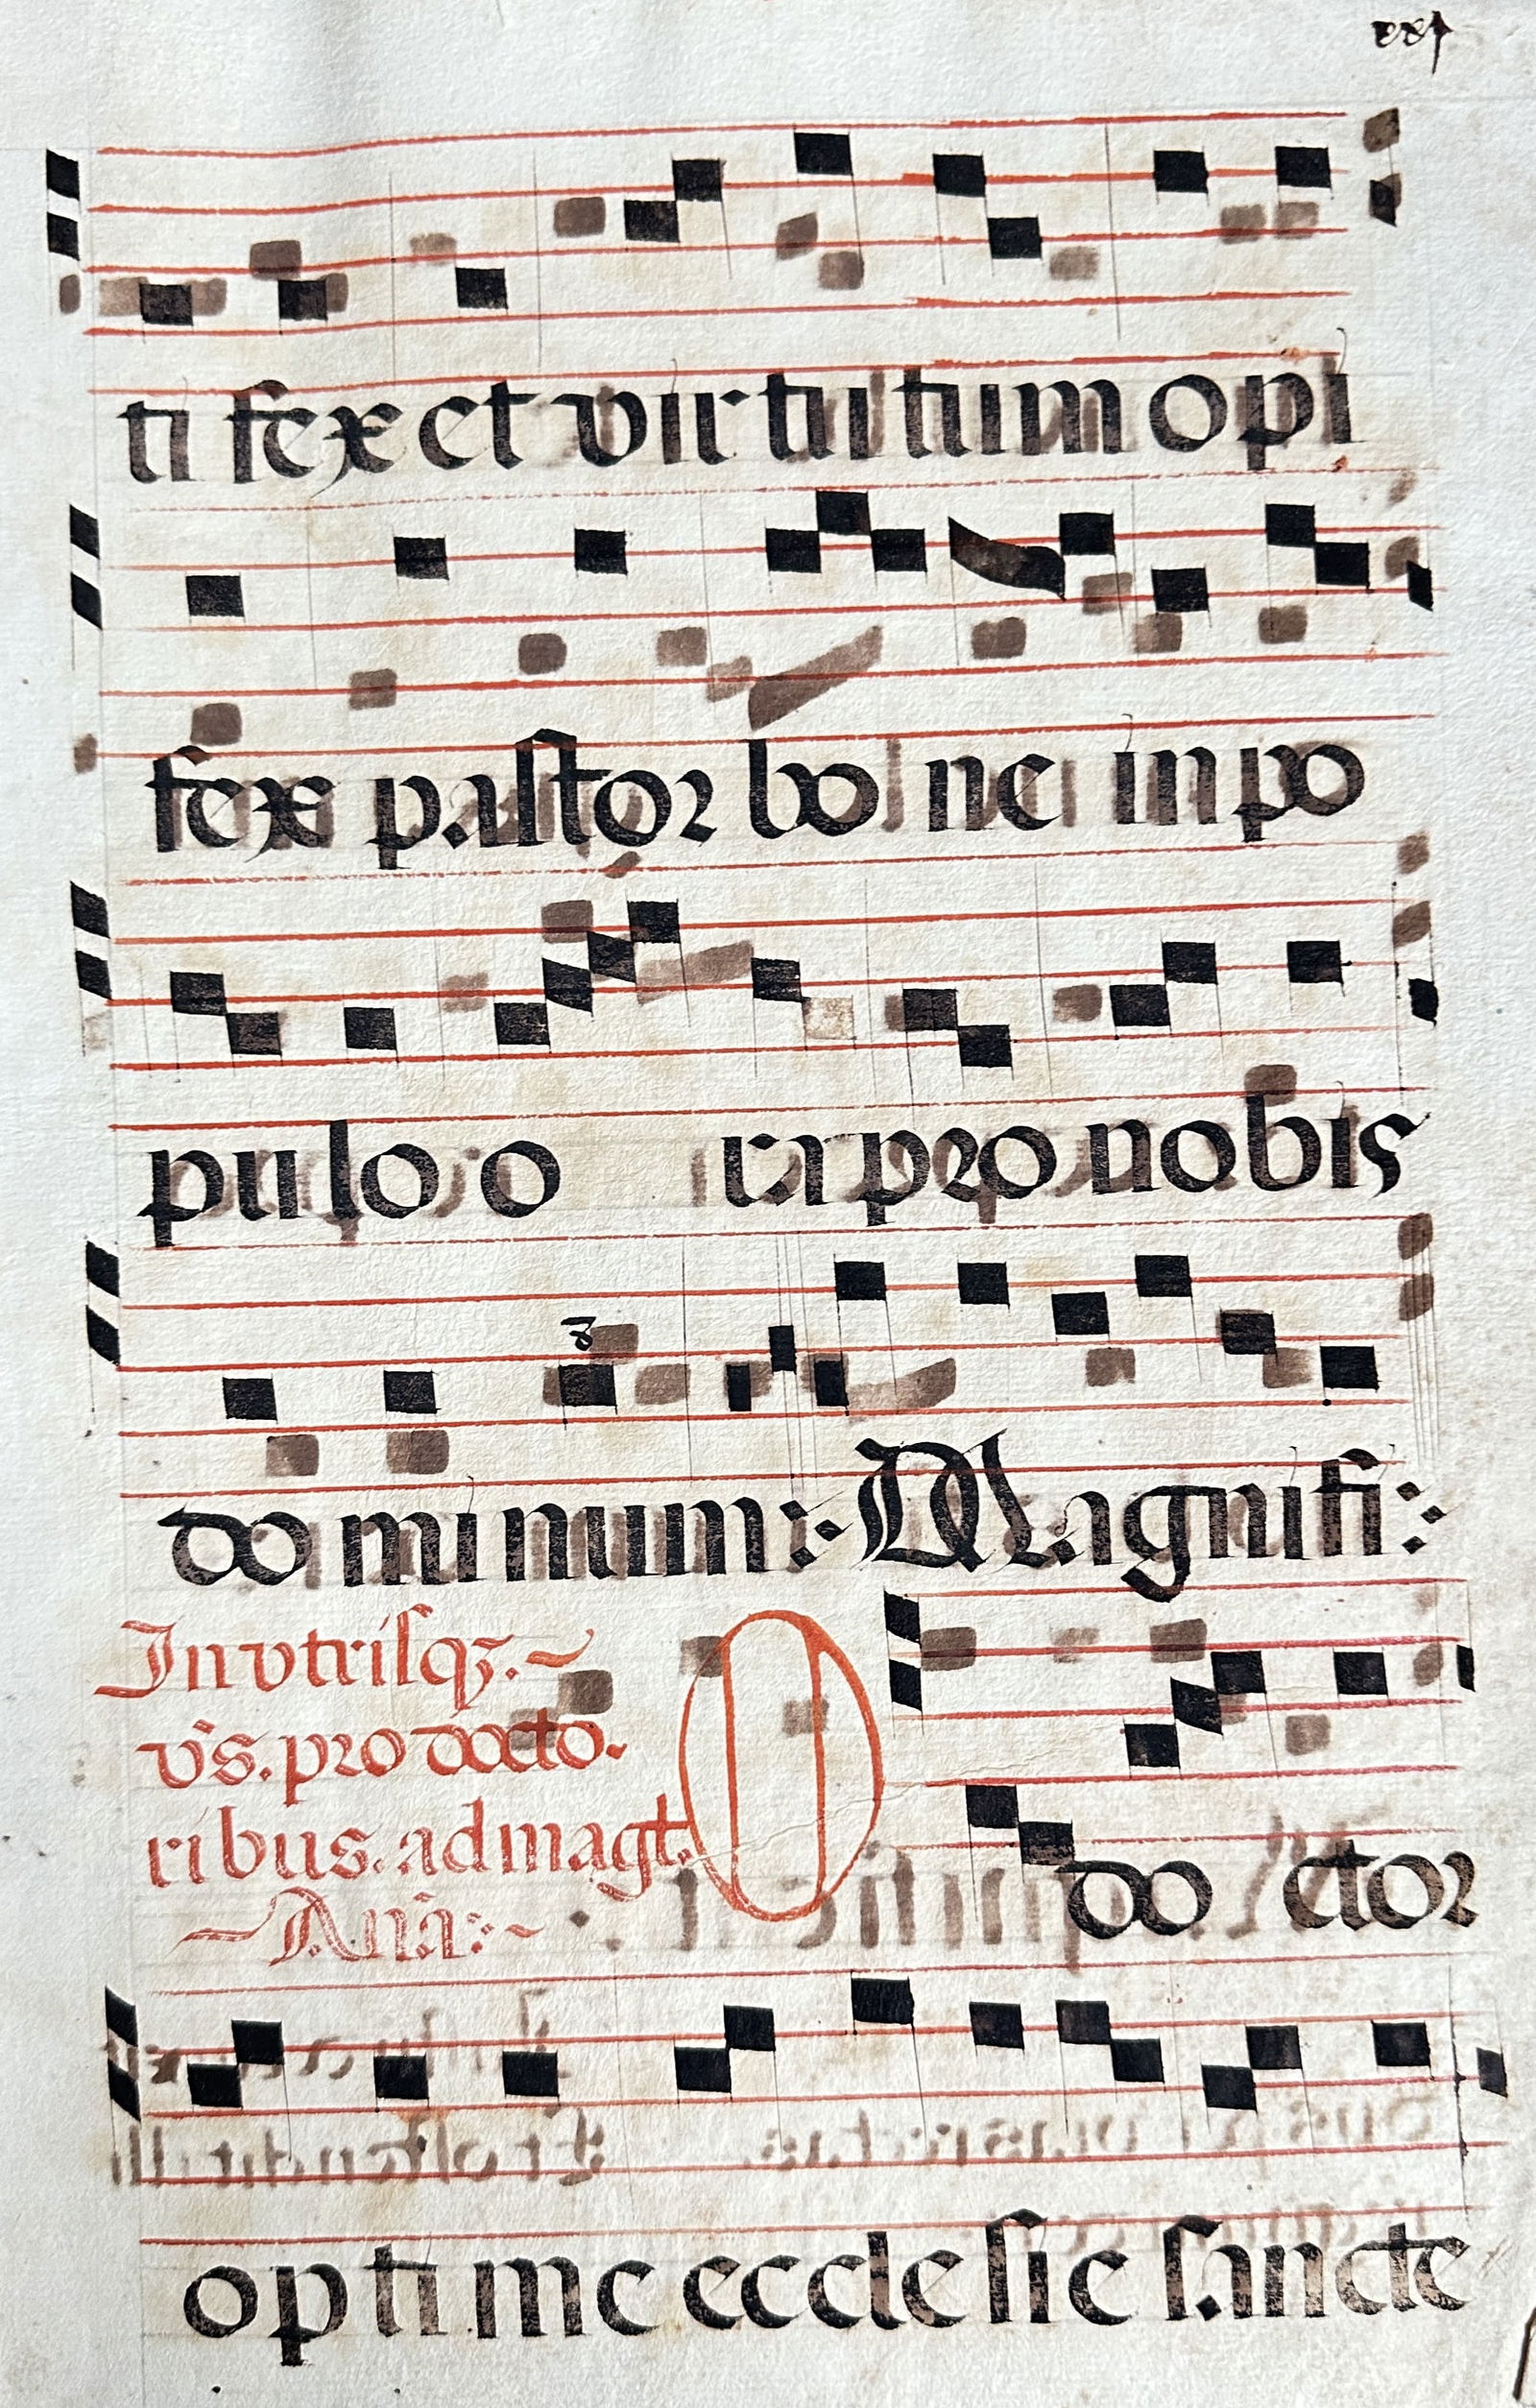 ti fex et virtutum opi
fex pastor bone in po
pulo ora pro nobis
dominum: Magnifi:
In vtrisq3.
vs. pro docto.
ribus. ad magt.
Aña:
O doctor
optime ecclesie sancte